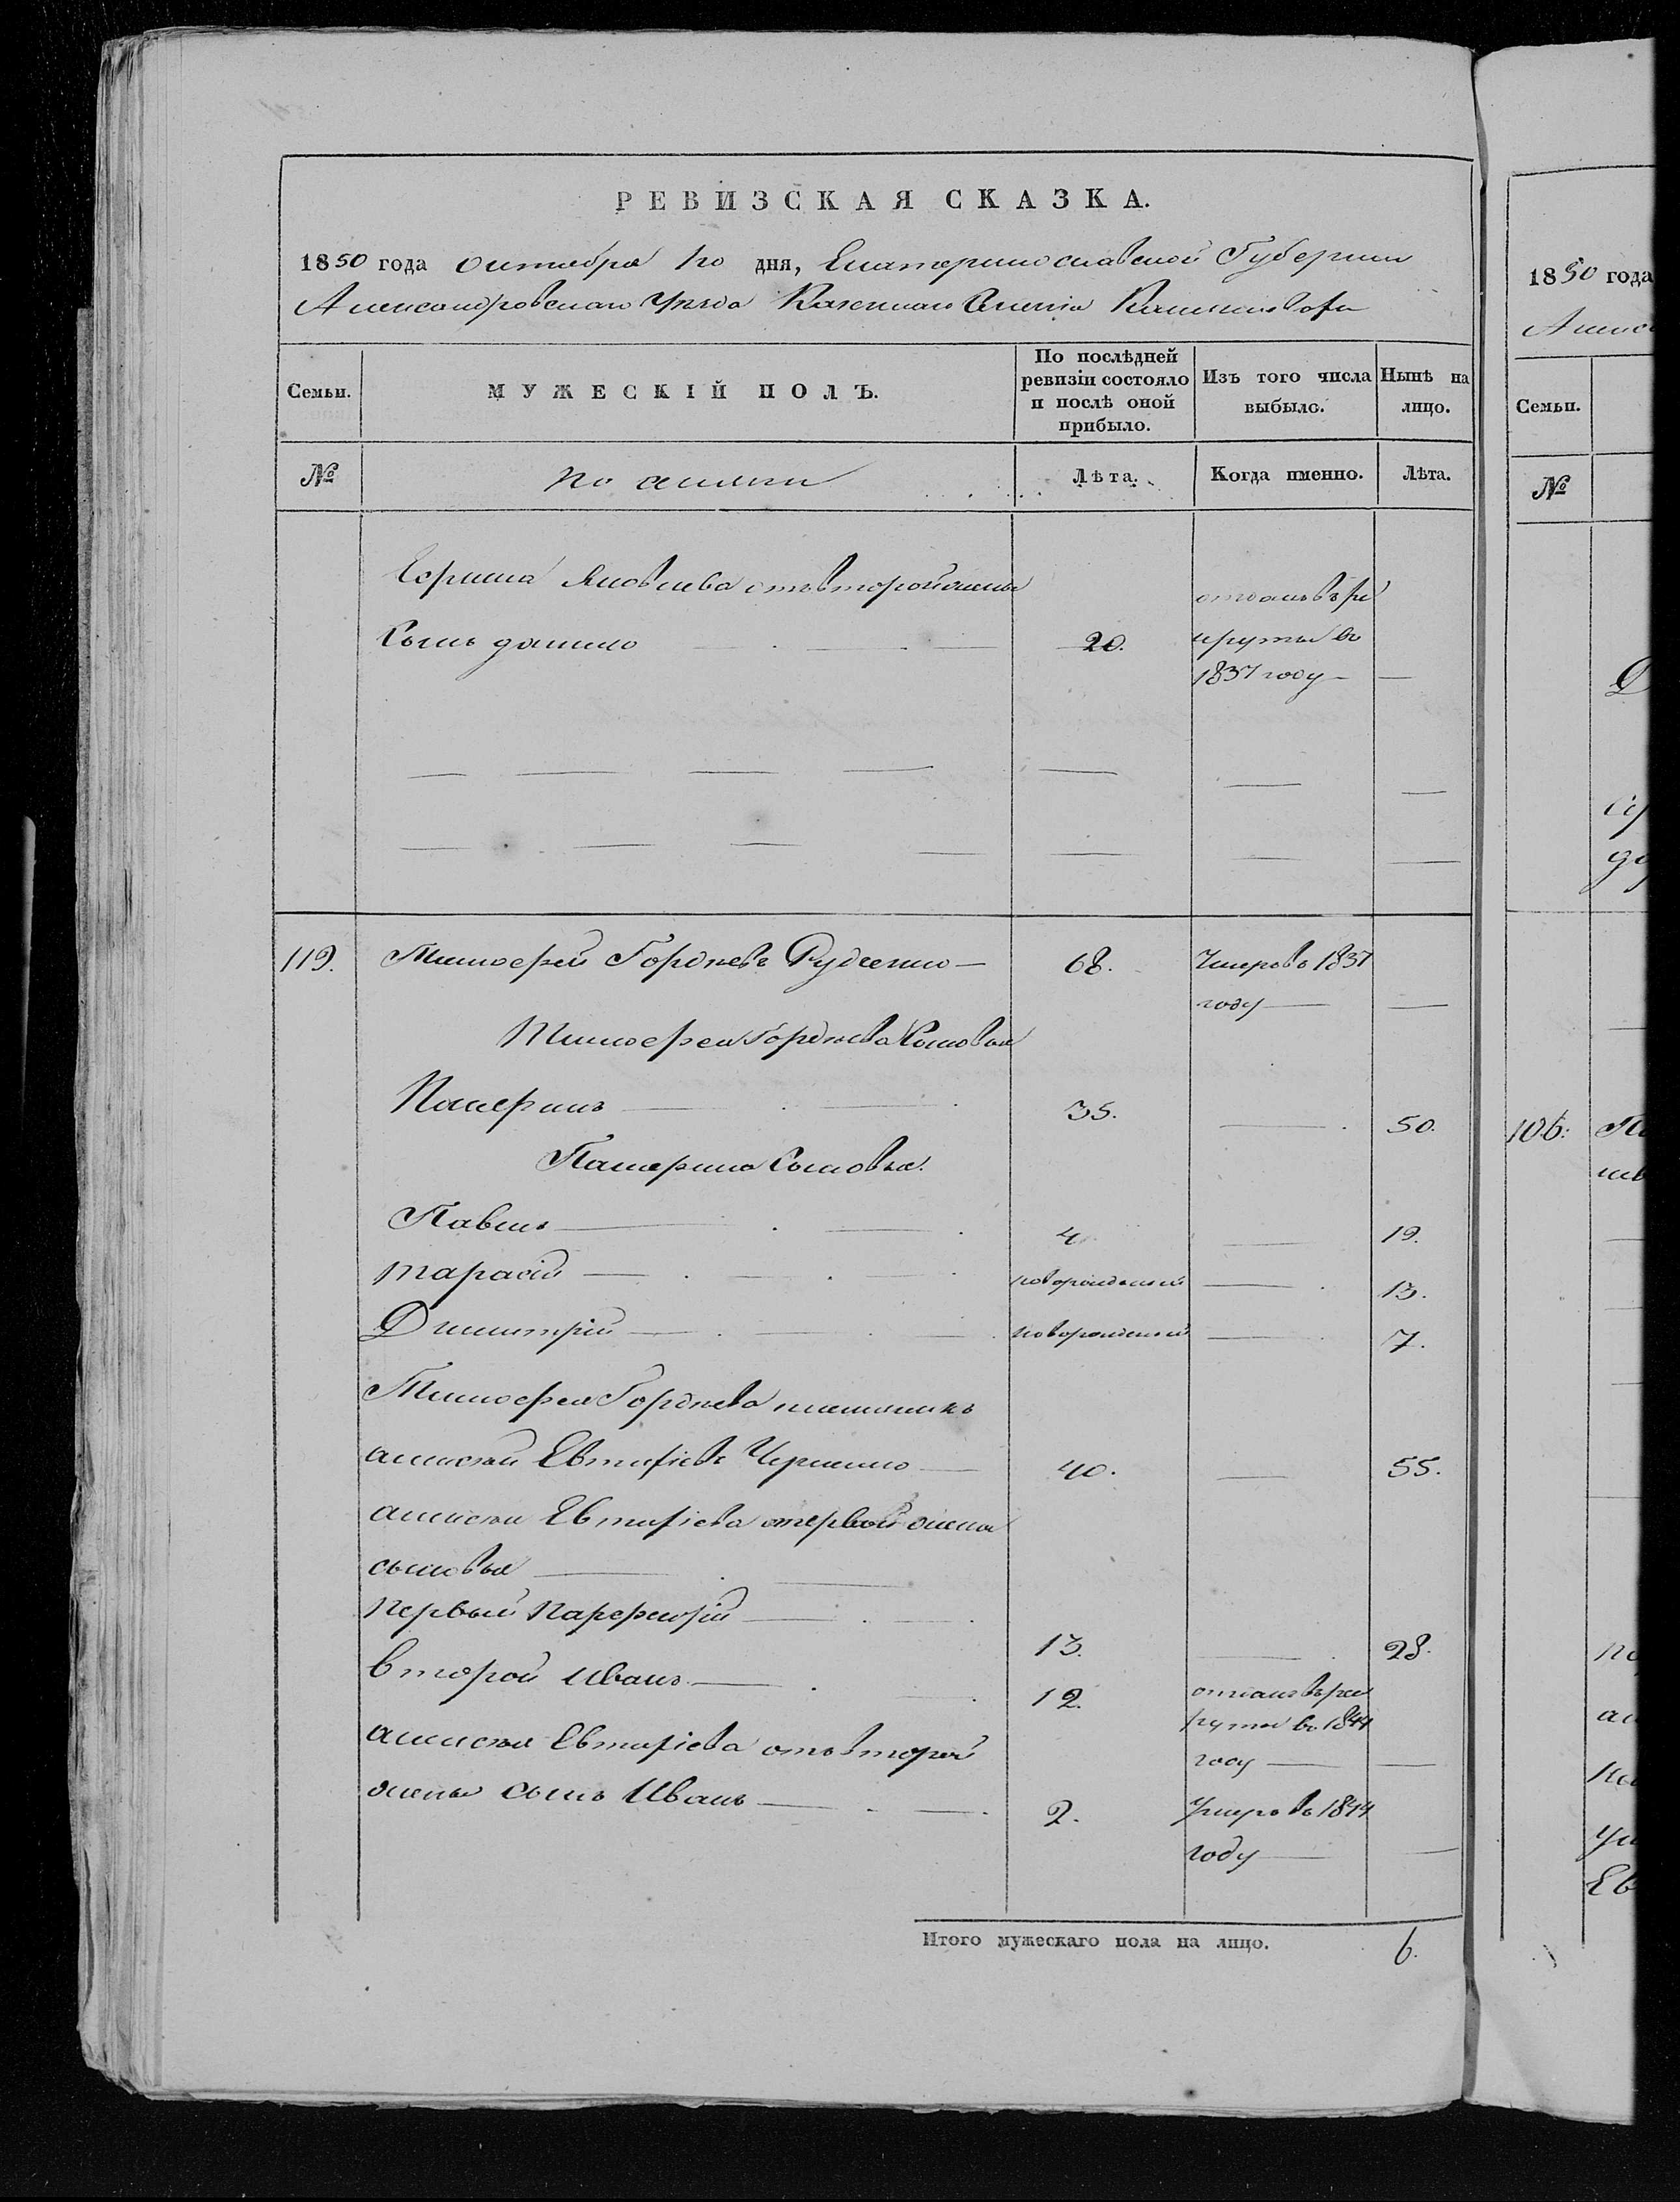 РЕВИЗСКАЯ СКАЗКА.
1850 года октября 10 дня, Екатеринославской Губернии
Александровскаго Уѣзда Казеннаго Селенія
Семьи.
МУЖЕСКІЙ ПОЛЪ.
По послѣдней ревизіи состояло и послѣ оной прибыло.
Изъ того числа выбыло.
Нынѣ на лицо.
№
Лѣта.
Когда именно.
Лѣта.
Яковлева отъ второй жены
отданъ въ ре
Сынъ данило 20. круты въ
1837 году
119. Тимофей Гордѣевъ Руденко 68. Умеръ въ 1837
году
Тимофея Гордѣева Сыновья
35. 50.
Сыновья
Павелъ 4 19.
тарасій новорожденный 13.
Дмитрій новорожденный 7.
Тимофея Гордѣева племянникъ
алексѣй Евтифіевъ Черненко 40. 55.
алексѣя Евтифіева отпервой жены
сыновья
первый Парфентій 13. 28.
второй иванъ 12. отданъ въ рек
руты въ 1844
году
алексѣя Евтифіева отъ второй
жены сынъ Иванъ 2. Умеръ въ 1844
году
Итого мужескаго пола на лицо. 6.
1850 года
Семьи.
№
106.
Ев